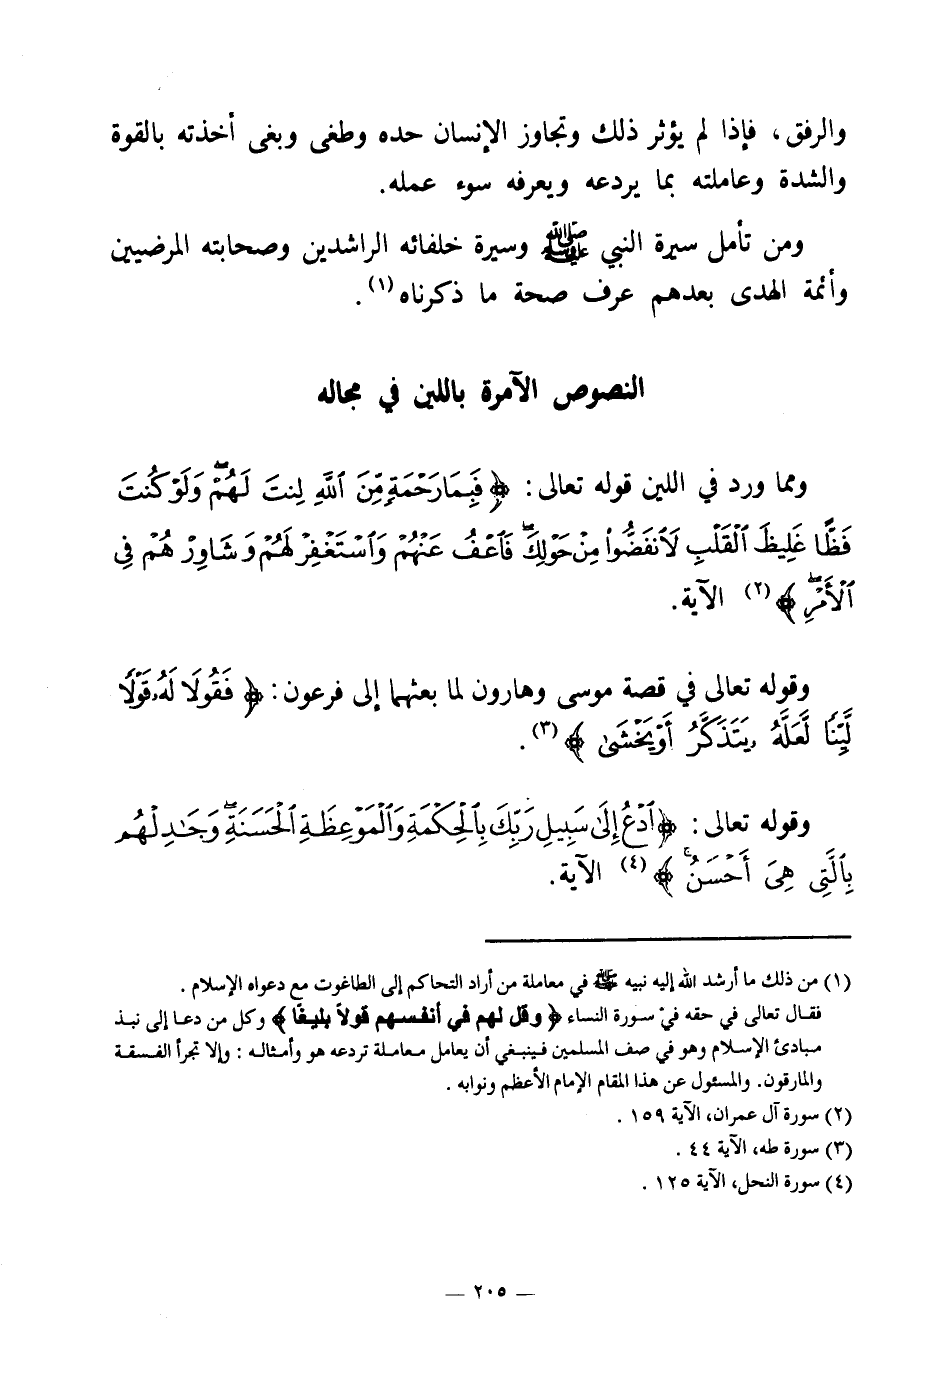 والرفق، فإذا لم يؤثر ذلك وتجاوز الإنسان حده وطغى وبغى أخذته بالقوة
والشدة وعاملته بما يردعه ويعرفه سوء عمله.
ومن تأمل سيرة النبي ﷺ وسيرة خلفائه الراشدين وصحابته المرضيين
وأئمة الهدى بعدهم عرف صحة ما ذكرناه(١).
النصوص الآمرة باللين في مجاله
ومما ورد في اللين قوله تعالى: ﴿ فَبِمَا رَحْمَةٍ مِّنَ ٱللَّهِ لِنتَ لَهُمْۖ وَلَوْ كُنتَ
فَظًّا غَلِيظَ ٱلْقَلْبِ لَٱنفَضُّوا۟ مِنْ حَوْلِكَۖ فَٱعْفُ عَنْهُمْ وَٱسْتَغْفِرْ لَهُمْ وَشَاوِرْهُمْ فِى
ٱلْأَمْرِۖ ﴾(٢) الآية.
وقوله تعالى في قصة موسى وهارون لما بعثهما إلى فرعون: ﴿ فَقُولَا لَهُۥ قَوْلًا
لَّيِّنًا لَّعَلَّهُۥ يَتَذَكَّرُ أَوْ يَخْشَىٰ ﴾(٣).
وقوله تعالى: ﴿ ٱدْعُ إِلَىٰ سَبِيلِ رَبِّكَ بِٱلْحِكْمَةِ وَٱلْمَوْعِظَةِ ٱلْحَسَنَةِۖ وَجَٰدِلْهُم
بِٱلَّتِى هِىَ أَحْسَنُۚ ﴾(٤) الآية.
(١) من ذلك ما أرشد الله إليه نبيه ﷺ في معاملة من أراد التحاكم إلى الطاغوت مع دعواه الإسلام .
فقال تعالى في حقه في سورة النساء ﴿ وقل لهم في أنفسهم قولاً بليغًا ﴾ وكل من دعا إلى نبذ
مبادئ الإسلام وهو في صف المسلمين فينبغي أن يعامل معاملة تردعه هو وأمثاله : وإلا تجرأ الفسقة
والمارقون. والمسئول عن هذا المقام الإمام الأعظم ونوابه .
(٢) سورة آل عمران، الآية ١٥٩ .
(٣) سورة طه، الآية ٤٤ .
(٤) سورة النحل، الآية ١٢٥ .
— ٢٠٥ —